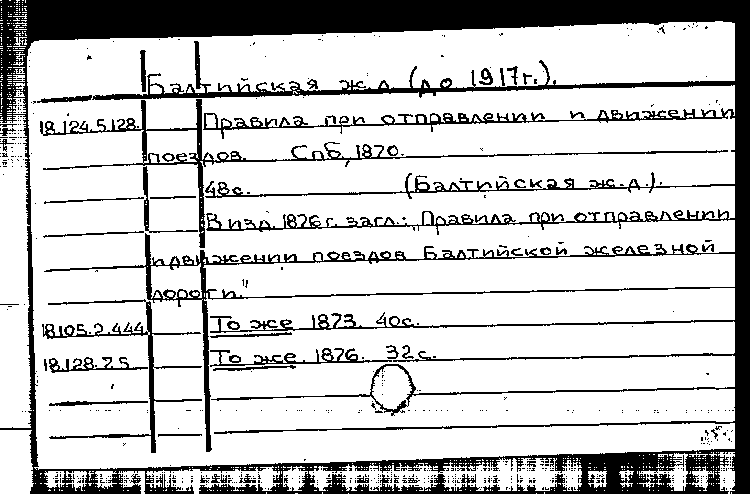 Балтийская ж.д. (до 1917г.).
18.124.5.128. Правила при отправлении и движении
поездов. СПб, 1870.
48с. (Балтийская ж.д.).
В изд. 1876 г. загл.: „Правила при отправлении
и движении поездов Балтийской железной
дороги."
18.105.2.444. То же 1873. 40с.
18.128.7.5 То же. 1876. 32с.